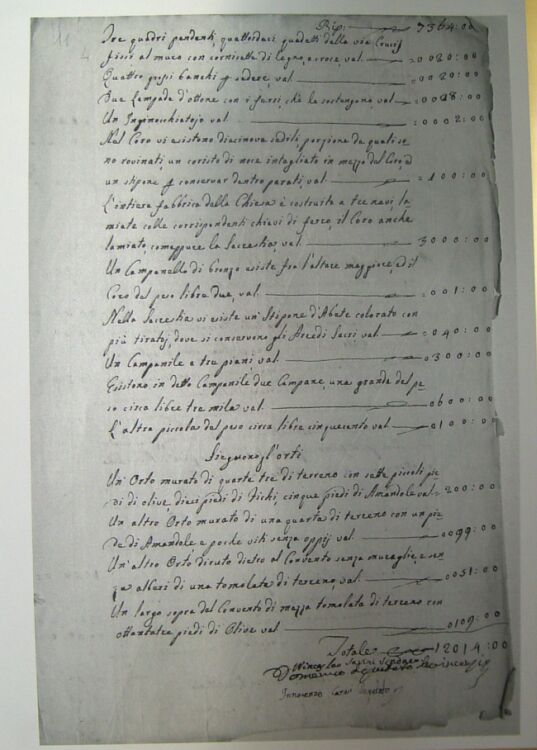 Rip: 7364:00
Tre quadri pendenti, quattordici quadetti della via Crucis
fissi al muro con cornicette di legno, e croce, val. =0020:00
Quattro grossi banchi p sedere, val =0020:00
Due Lampade d'ottone con i fursi, che le sostengono val =0028:00
Un Inginocchiatojo val =0002:00
Nel Coro vi esistono diecinove sedili, porzione de quali se
no rovinati, un corista di noce intagliato in mezzo del Coro, ed
un stipone p conservar dentro parati, val =100:00
L'intiera fabbrica della Chiesa è costruita a tre navi, la
miate colle corrispondenti chiavi di ferro, il Coro anche
lamiato, comeppure la Secrestia, val 3000:00
Un Campanello di bronzo esiste fra l'altare maggiore, ed il
Coro del peso libre due, val =001:00
Nella Secrestia vi esiste un Stipone d'Abete colorato con
più tiratoj, dove si conservono gli Arredi Sacri val =040:00
Un Campanile a tre piani val =0300:00
Esistono in detto Campanile due Campane, una grande del pe-
so circa libre tre mila val 0600:00
L'altra piccola del peso circa libre cinquecento val 0100:00
Sieguono gl'orti
Un Orto murato di quarte tre di terreno con sette piccoli pie-
di di olive, dieci piedi di fichi, cinque piedi di Amandole val 200:00
Un altro Orto murato di una quarta di terreno con un pie-
de di Amandole e poche viti senza oppij val 0099:00
Un'altro Orto diruto dietro al Convento senza muraglie, e sen-
za alberi di una tomolata di terreno, val 0051:00
Un largo sopra del Convento di mezza tomolata di terreno con
ottantatre piedi di Olive val 0109:00
Totale 12014:00
Domenico
Innocenzo